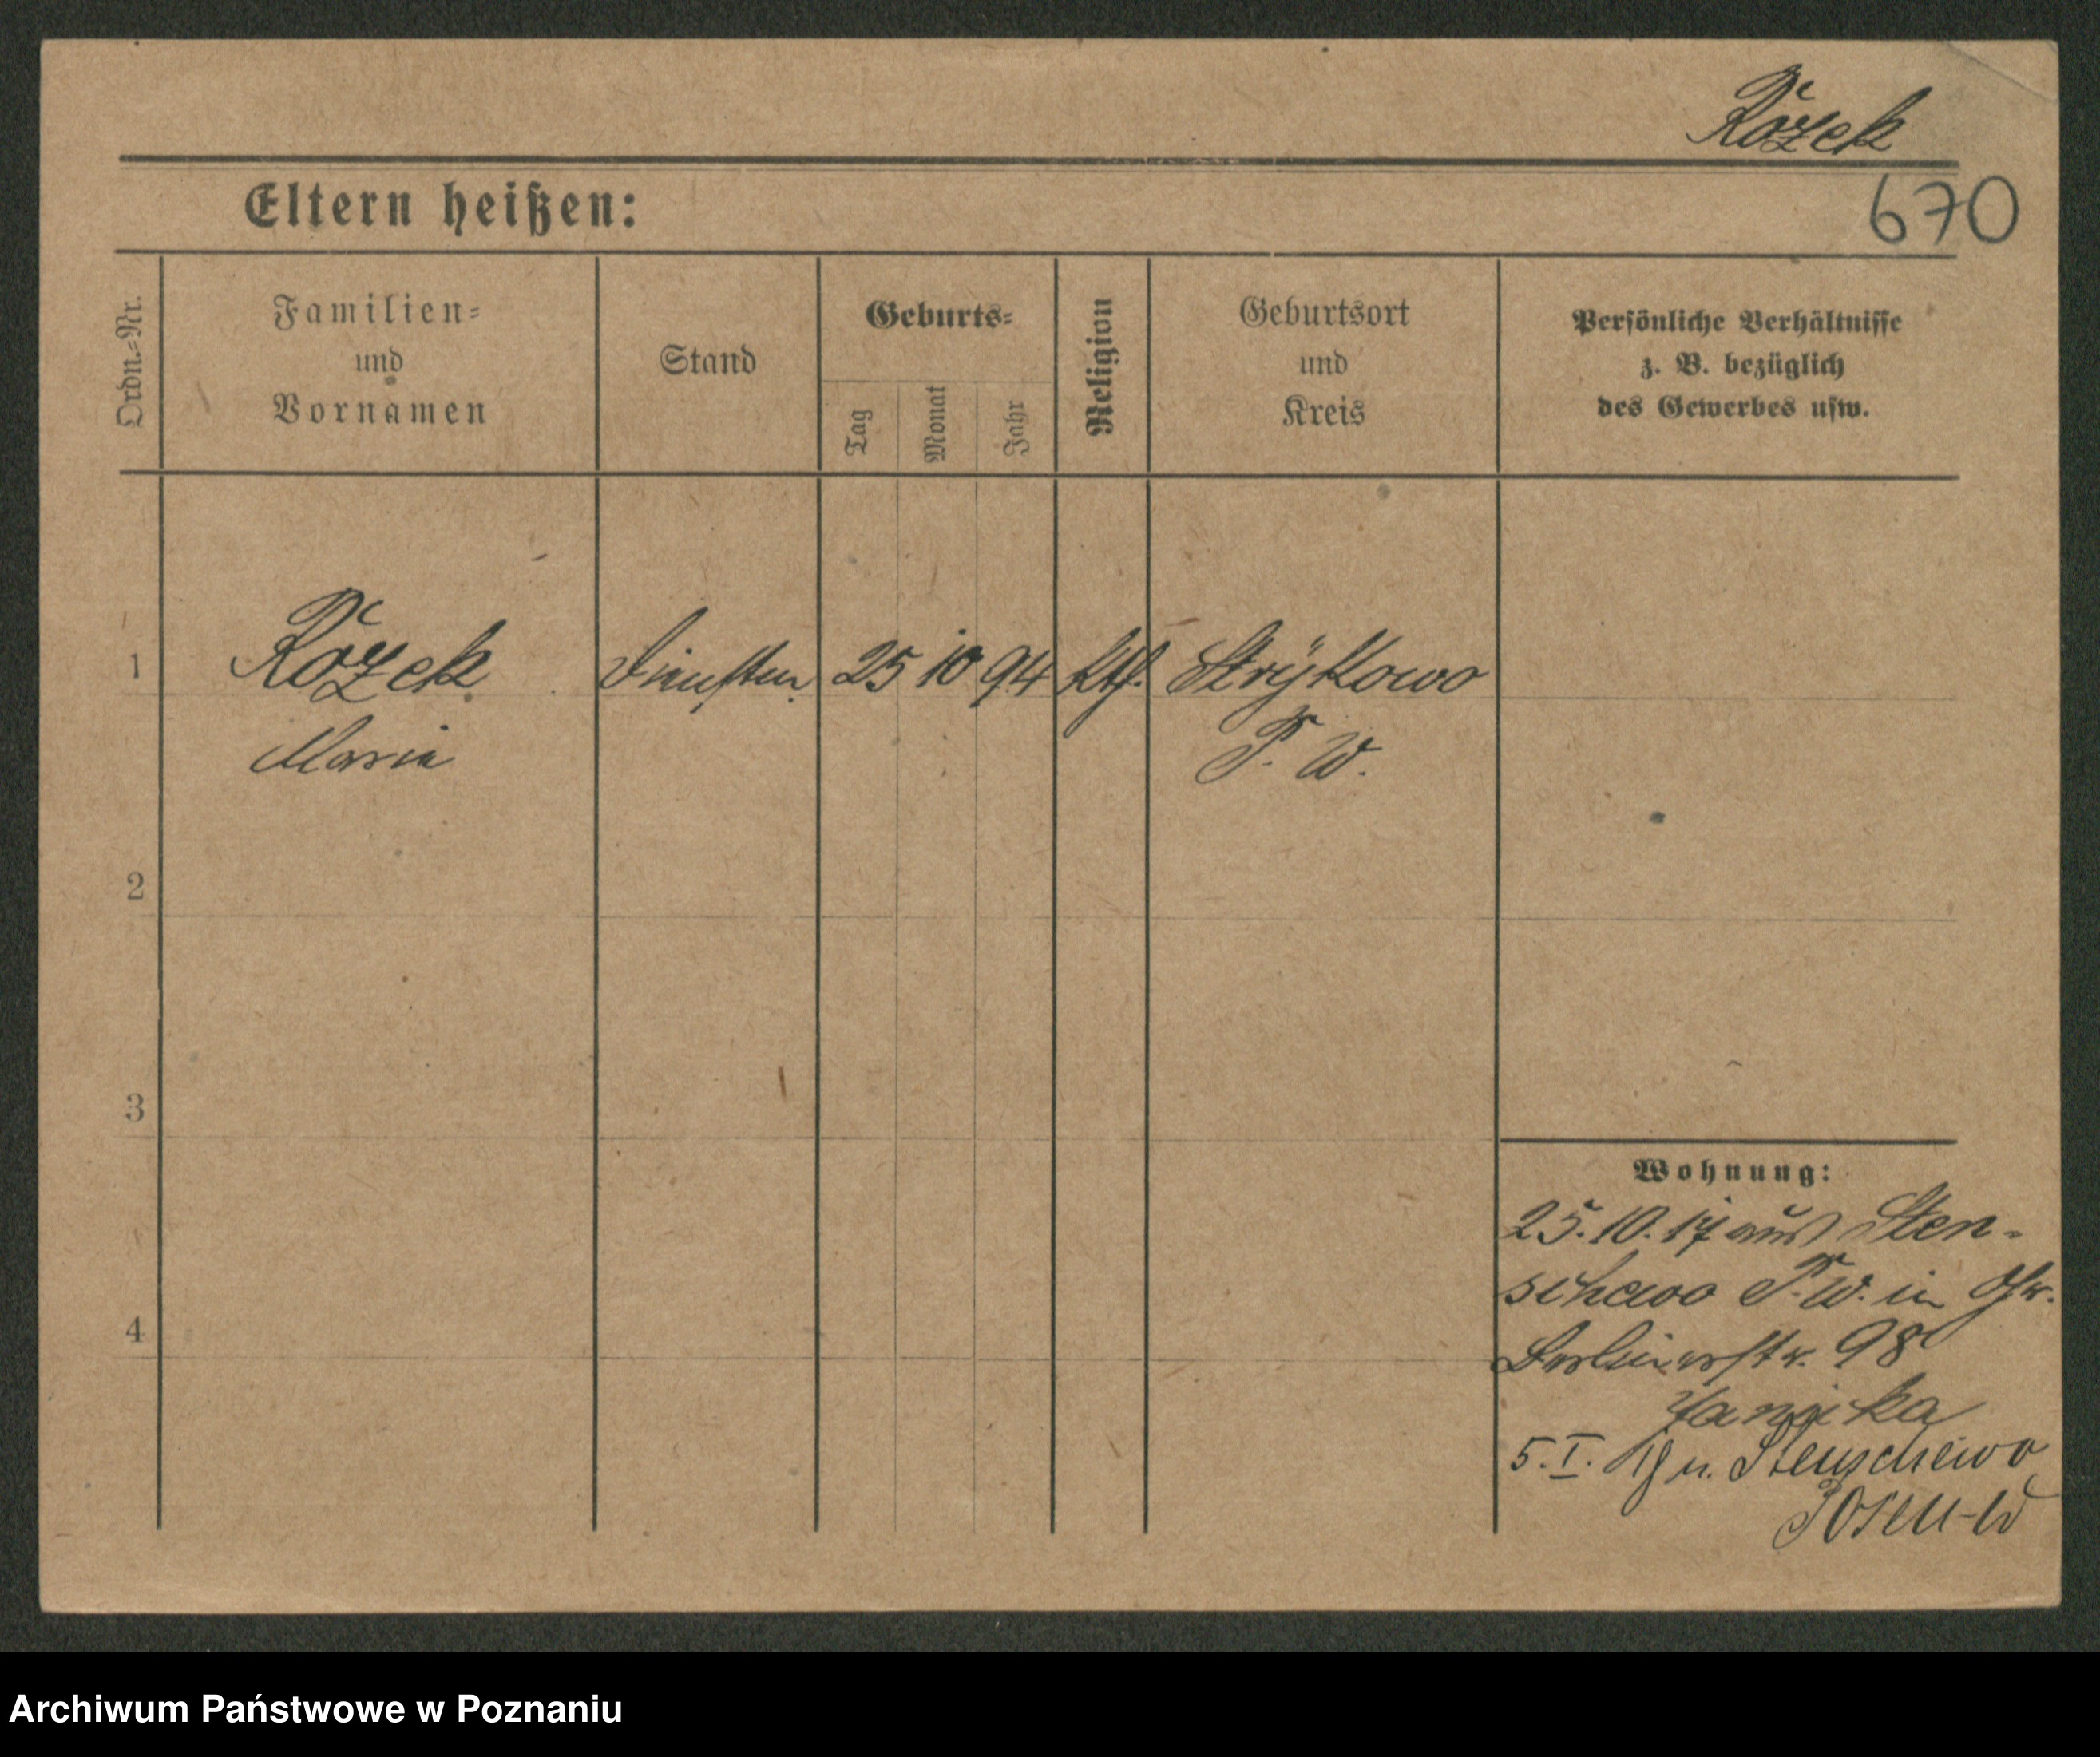 Rożek
670
Eltern heißen:
Ordn.-Nr.
Familien-
und
Vornamen
Stand
Geburts-
Tag
Monat
Jahr
Religion
Geburtsort
und
Kreis
Persönliche Verhältnisse
z. B. bezüglich
des Gewerbes usw.
1 Rożek 25 10 94 kth. Strÿkowo
Maria P. W.
2
3
4
Wohnung:
25.10.17 aus Sten-
schewo P. W. in
Berlinerstr. 98
5. I. n. Stenschewo
Posen-W
Archiwum Państwowe w Poznaniu